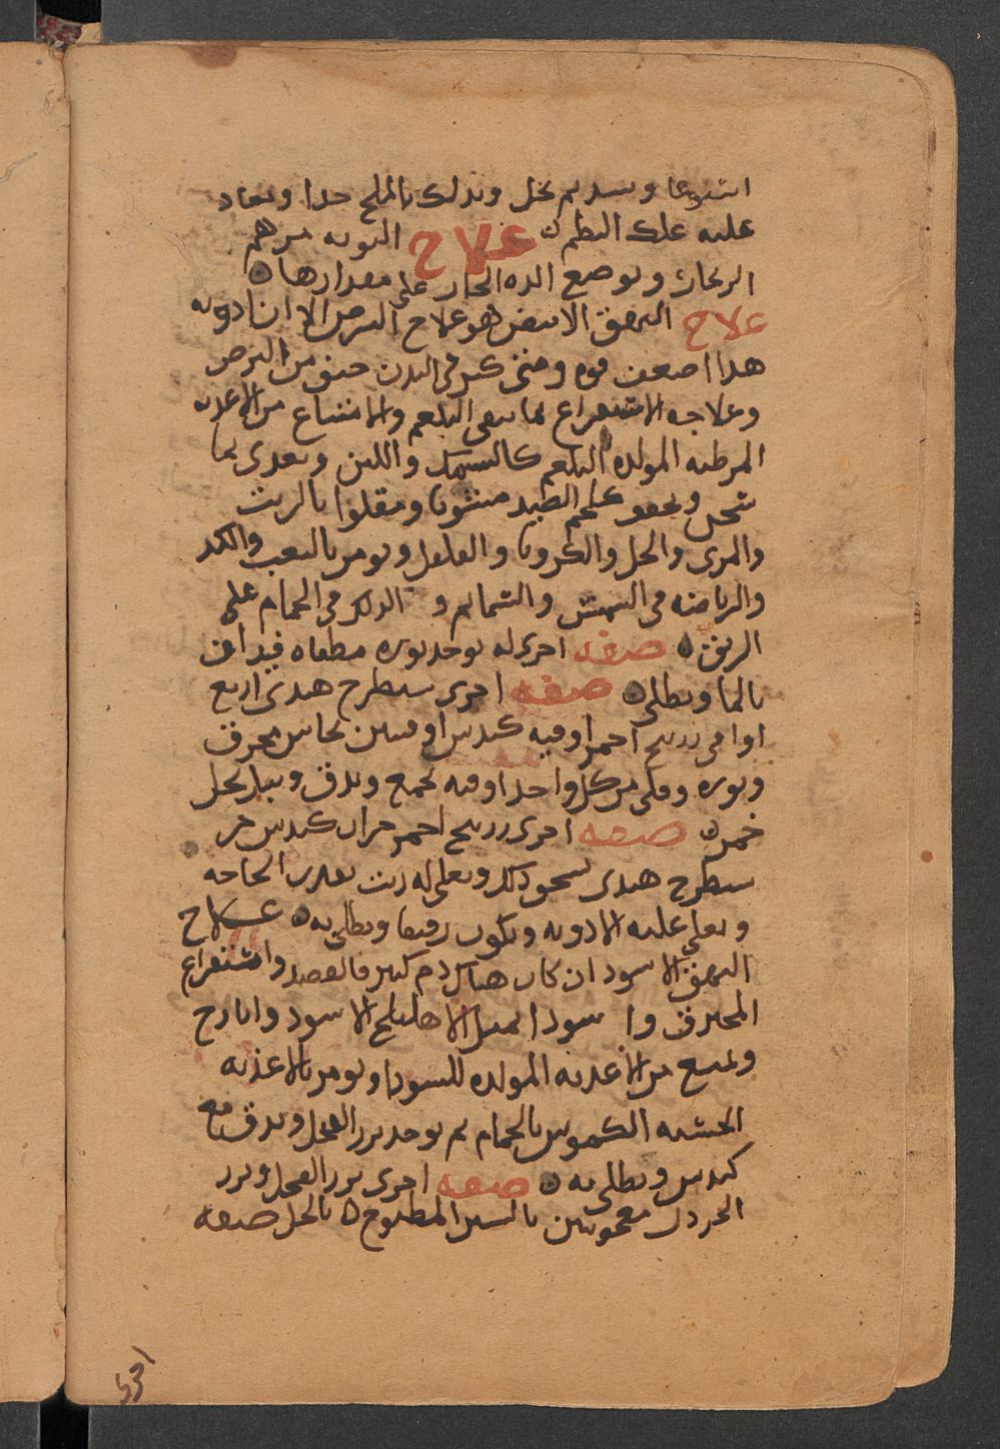 اسبوعا ويستديم بخل ويدلك بالملح جدا ويعاد
عليه علك البطم علاج التوته مرهم
الزنجار ويوضع الده الحار على مقدارها
علاج البهق الابيض هو علاج البرص الا ان ادويه
هذا اضعف قوه ومتى كثر في البدن خيف من البرص
وعلاجه الاستفراغ بما ينقى البلغم والامتناع من الاغذيه
المرطبه المولده البلغم كالسمك واللبن ويغذى بما
يسخن ويجفف كلحم الصيد مشويا ومقلوا بالزيت
والمرى والخل والكرويا والفلفل ويومر بالتعب والكد
والرياضه في الشمس والشمائم والدلك في الحمام على
الريق صفه اخرى له يوخذ نوره مطفاه فيداف
بالما ويطلى صفه اخرى سيطرج هندى اربع
اواقى زرنيخ احمر اوقيه كندس اوقيتين نحاس محرق
ونوره وقلى من كل واحد اوقيه يجمع ويدق ويبل بخل
خمر صفه اخرى زرنيخ احمر جزان كندس جز
سيطرج هندى يسحق ذلك ويغلى له زيت بقدر الحاجه
ويغلى عليه الادويه ويكون رقيقا ويطلى به علاج
البهق الاسود ان كان هناك دم كثير فالفصد واستفراغ
المحترق واسود بمثل الاهليلج الاسود وايارج
ويمنع من الاغذيه المولده للسودا ويومر بالاغذيه
الحسنه الكيموس بالحمام ثم يوخذ بزر الفجل ويدق مع
كندس ويطلى به صفه اخرى بزر الفجل وبزر
الخردل معجونين بالتين المطبوخ بالخل صفه